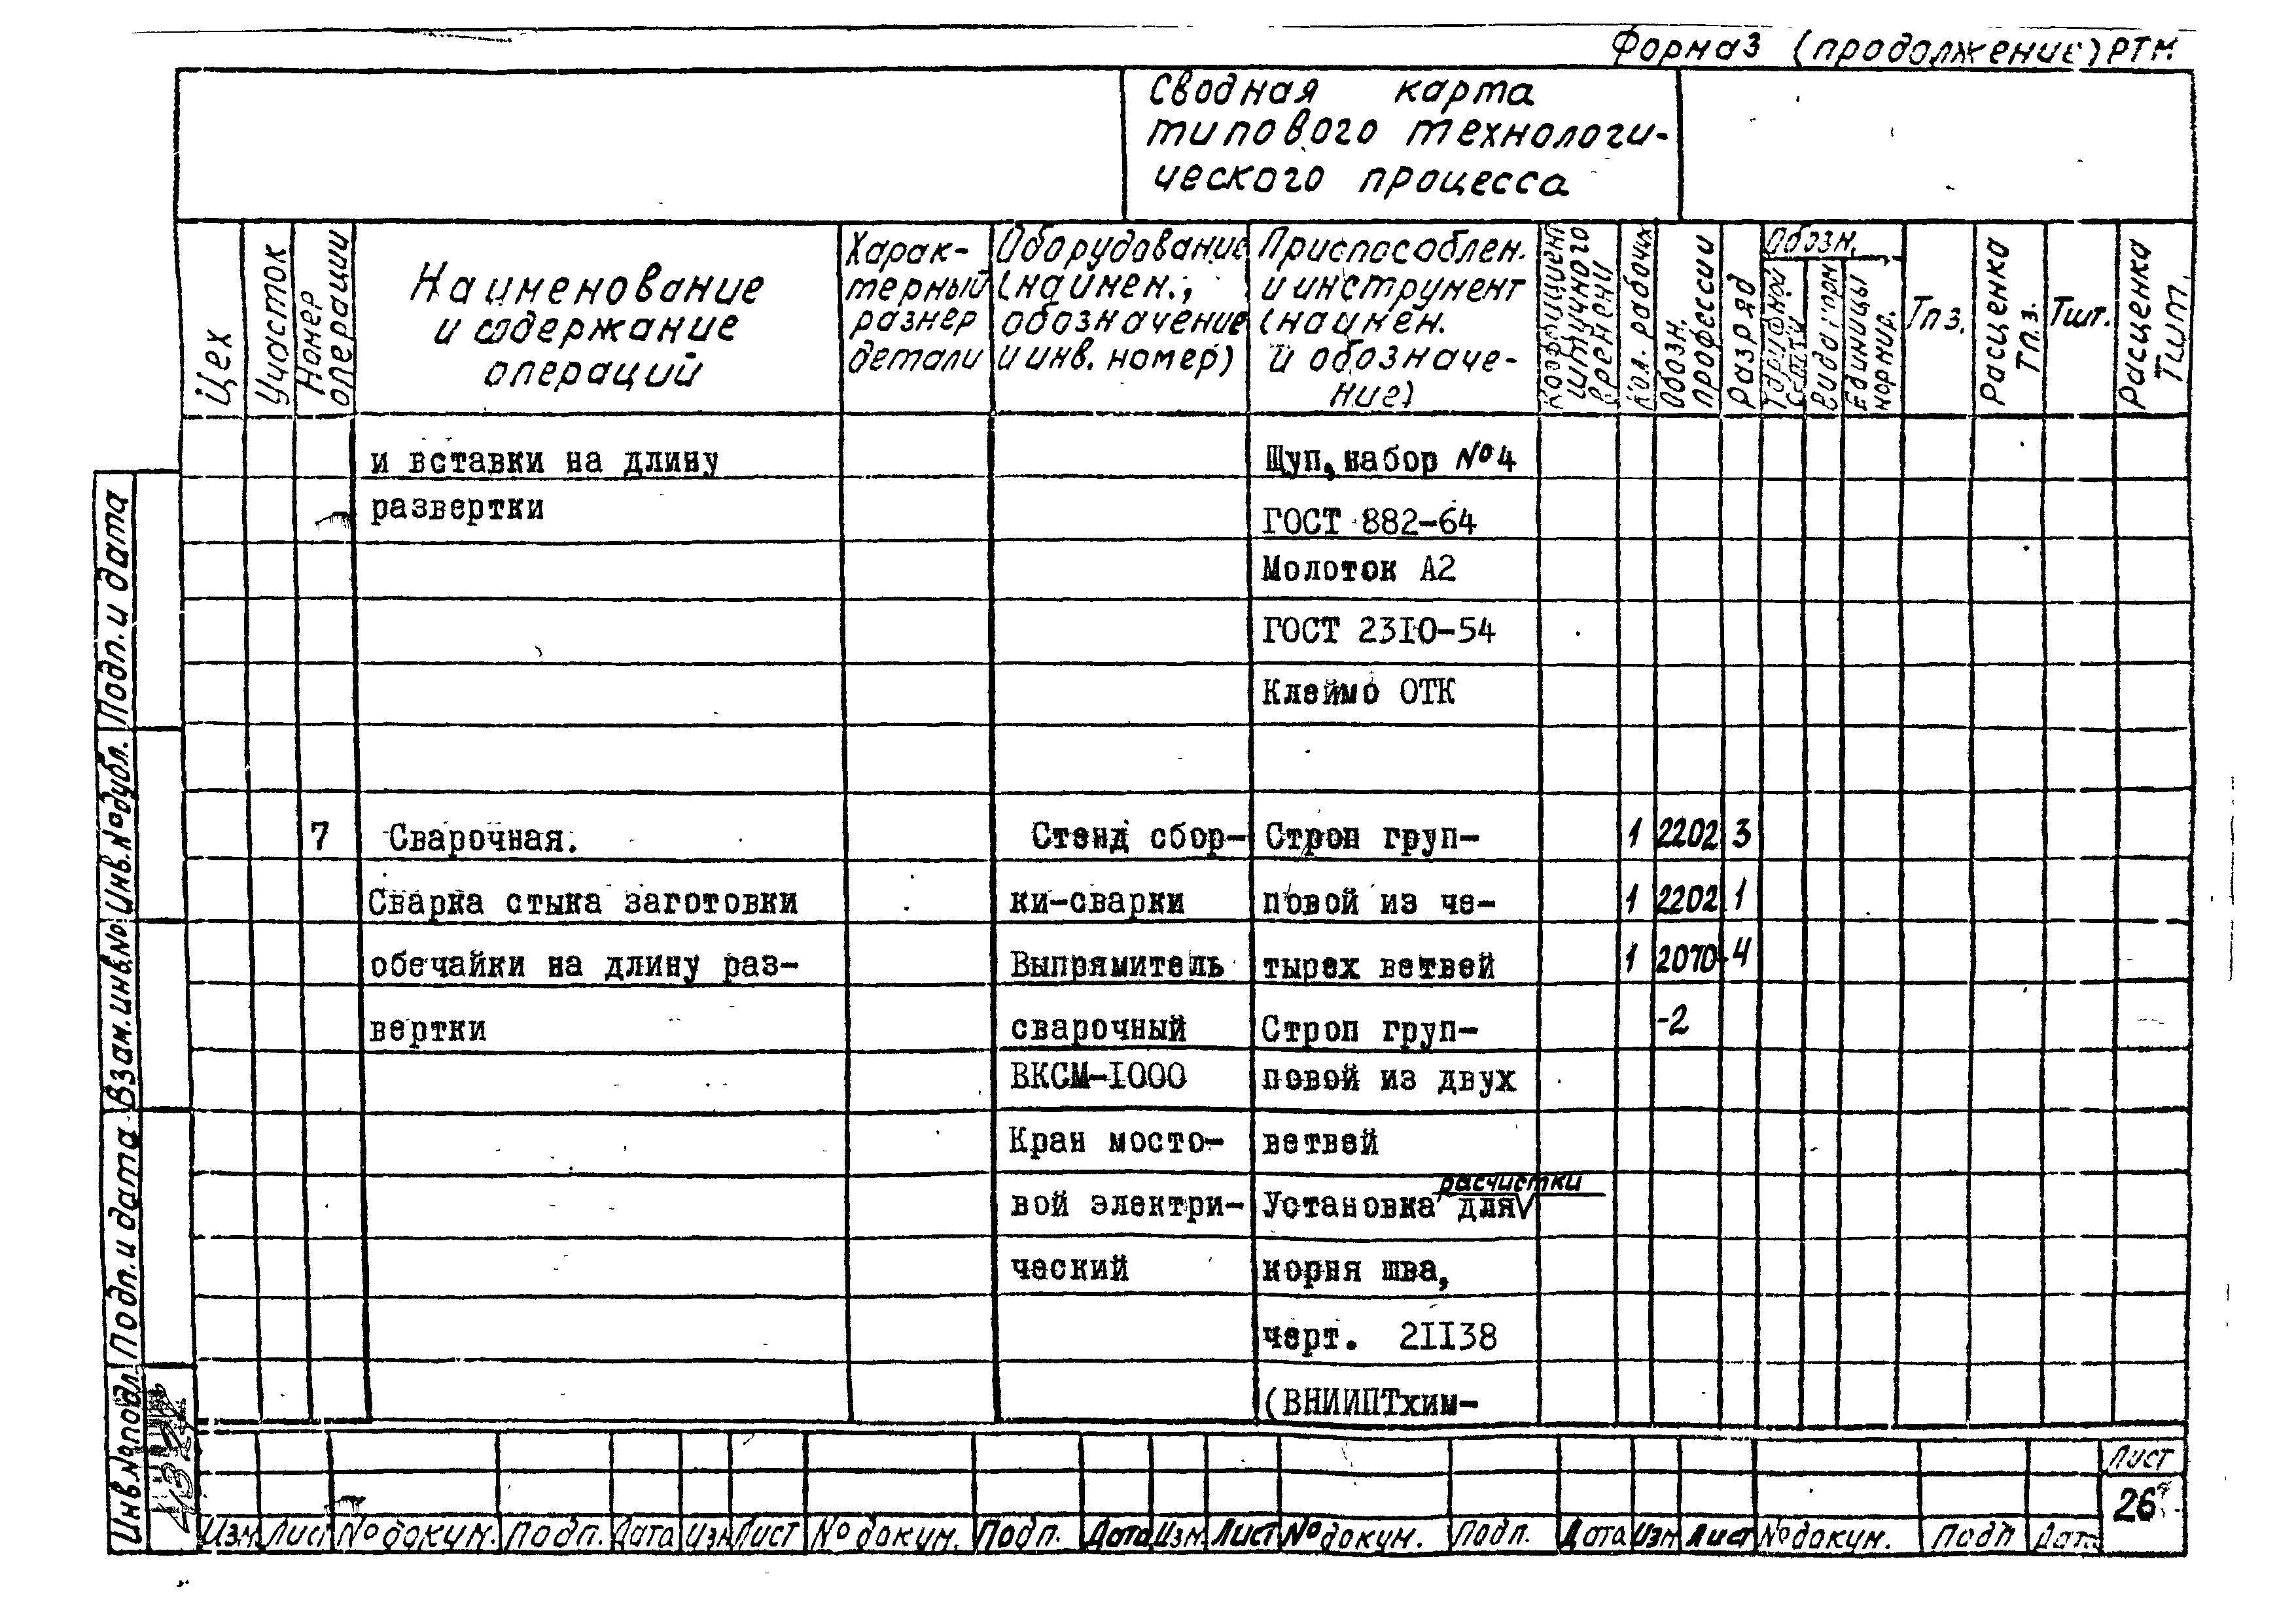 Форма 3 (продолжение) РТМ
Сводная карта
типового технологи-
ческого процесса
Цех
Участок
Номер операции
Наименование
и содержание
операций
Харак-
терный
размер
детали
Оборудование
(наимен.,
обозначение
и инв. номер)
Приспособлен.
и инструмент
(наимен.
и обозначе-
ние)
Коэффициент штучного времени
Кол. рабочих
Обозн. профессии
Разряд
Обозн.
Тарифной сетки
Вида норм
Единицы нормир.
Тпз.
Расценка Тп.з.
Тшт.
Расценка Тшт.
и вставки на длину Щуп, набор №4
развертки ГОСТ 882-64
Молоток А2
ГОСТ 2310-54
Клеймо ОТК
7 Сварочная. Стенд сбор- Строп груп- 1 2202 3
Сварка стыка заготовки ки-сварки повой из че- 1 2202 1
обечайки на длину раз- Выпрямитель тырех ветвей 1 2070 4
вертки сварочный Строп груп- -2
ВКСМ-1000 повой из двух
Кран мосто- ветвей
расчистки
вой электри- Установка для
ческий корня шва,
черт. 21138
(ВНИИПТхим-
Подп. и дата
Инв.№дубл.
Взам.инв.№
Подп. и дата
Инв.№подл.
Лист
26
Изм Лист № докум. Подп. Дата Изм Лист № докум. Подп. Дата Изм. Лист № докум. Подп. Дата Изм Лист № докум. Подп Дат